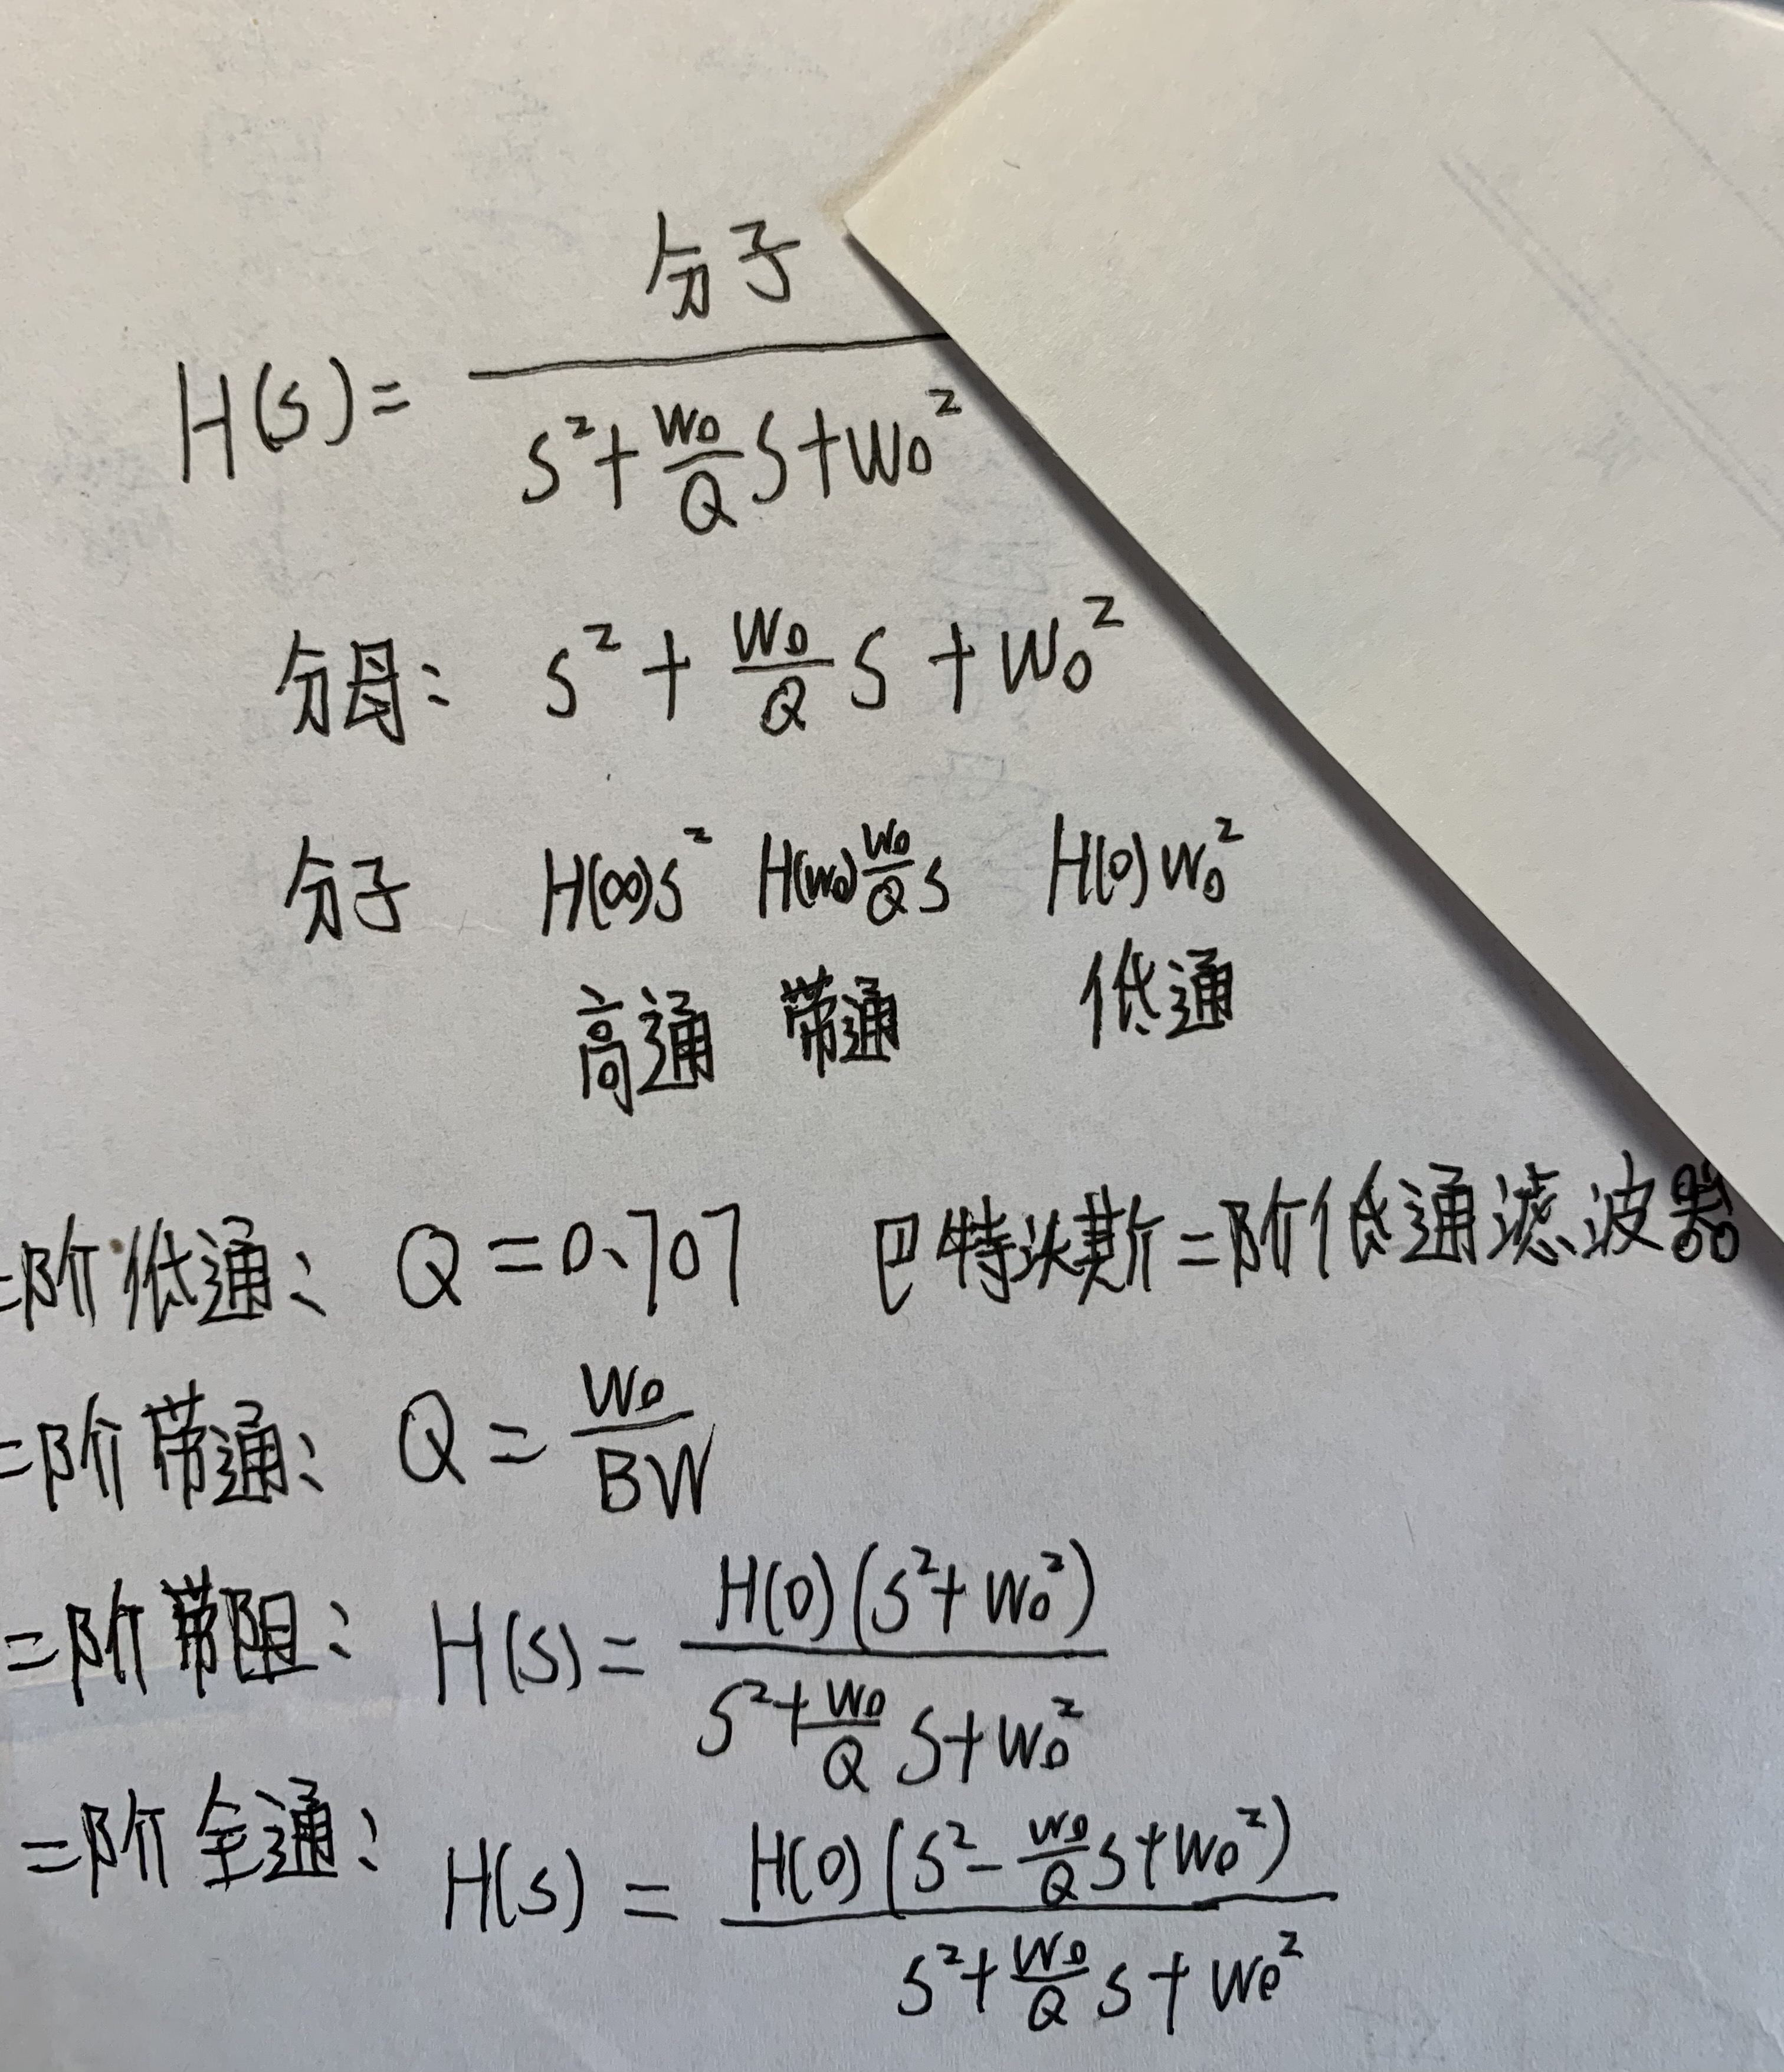 H(s)= 分子 / (s²+(W₀/Q)s+W₀²)
分母: s²+(W₀/Q)s+W₀²
分子 H(∞)s² H(W₀)(W₀/Q)s H(0)W₀²
高通 带通 低通
二阶低通: Q=0.707 巴特沃斯二阶低通滤波器
二阶带通: Q=W₀/BW
二阶带阻: H(s)=H(0)(s²+W₀²) / (s²+(W₀/Q)s+W₀²)
二阶全通: H(s)=H(0)(s²-(W₀/Q)s+W₀²) / (s²+(W₀/Q)s+W₀²)